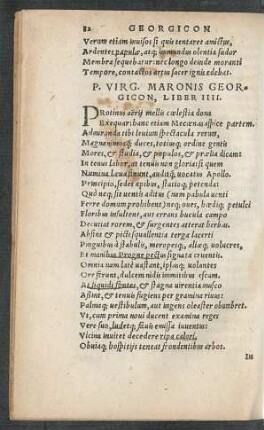 82 GEORGICON
Verum etiam inuisos si quis tentaret amictus,
Ardentes papulæ, atq; immundus olentia sudor
Membra sequebatur: nec longo deinde moranti
Tempore, contactos artus sacer ignis edebat.
P. VIRG. MARONIS GEOR-
GICON, LIBER IIII.
PRotinus aërij mellis cœlestia dona
Exequar: hanc etiam Mecœnas aspice partem.
Admiranda tibi leuium spectacula rerum,
Magnanimosq; duces, totiusq; ordine gentis
Mores, & studia, & populos, & prælia dicam:
In tenui labor, at tenuis non gloria: si quem
Numina læua sinunt, auditq; uocatus Apollo.
Principio, sedes apibus, statioq; petenda:
Quò neq; sit uentis aditus (nam pabula uenti
Ferre domum prohibent) neq; oues, hœdiq; petulci
Floribus insultent, aut errans bucula campo
Decutiat rorem, & surgentes atterat herbas.
Absint & picti squallentia terga lacerti
Pinguibus à stabulis, meropesq;, aliæq; uolucres,
Et manibus Progne pectus signata cruentis.
Omnia nam latè uastant, ipsasq; uolantes
Ore ferunt, dulcem nidis immitibus escam.
At liquidi fontes, & stagna uirentia musco
Adsint, & tenuis fugiens per gramina riuus:
Palmaq; uestibulum, aut ingens oleaster obumbret.
Vt, cum prima noui ducent examina reges
Vere suo, ludetq; fauis emissa iuuentus:
Vicina inuitet decedere ripa calori,
Obuiaq; hospitijs teneat frondentibus arbos.